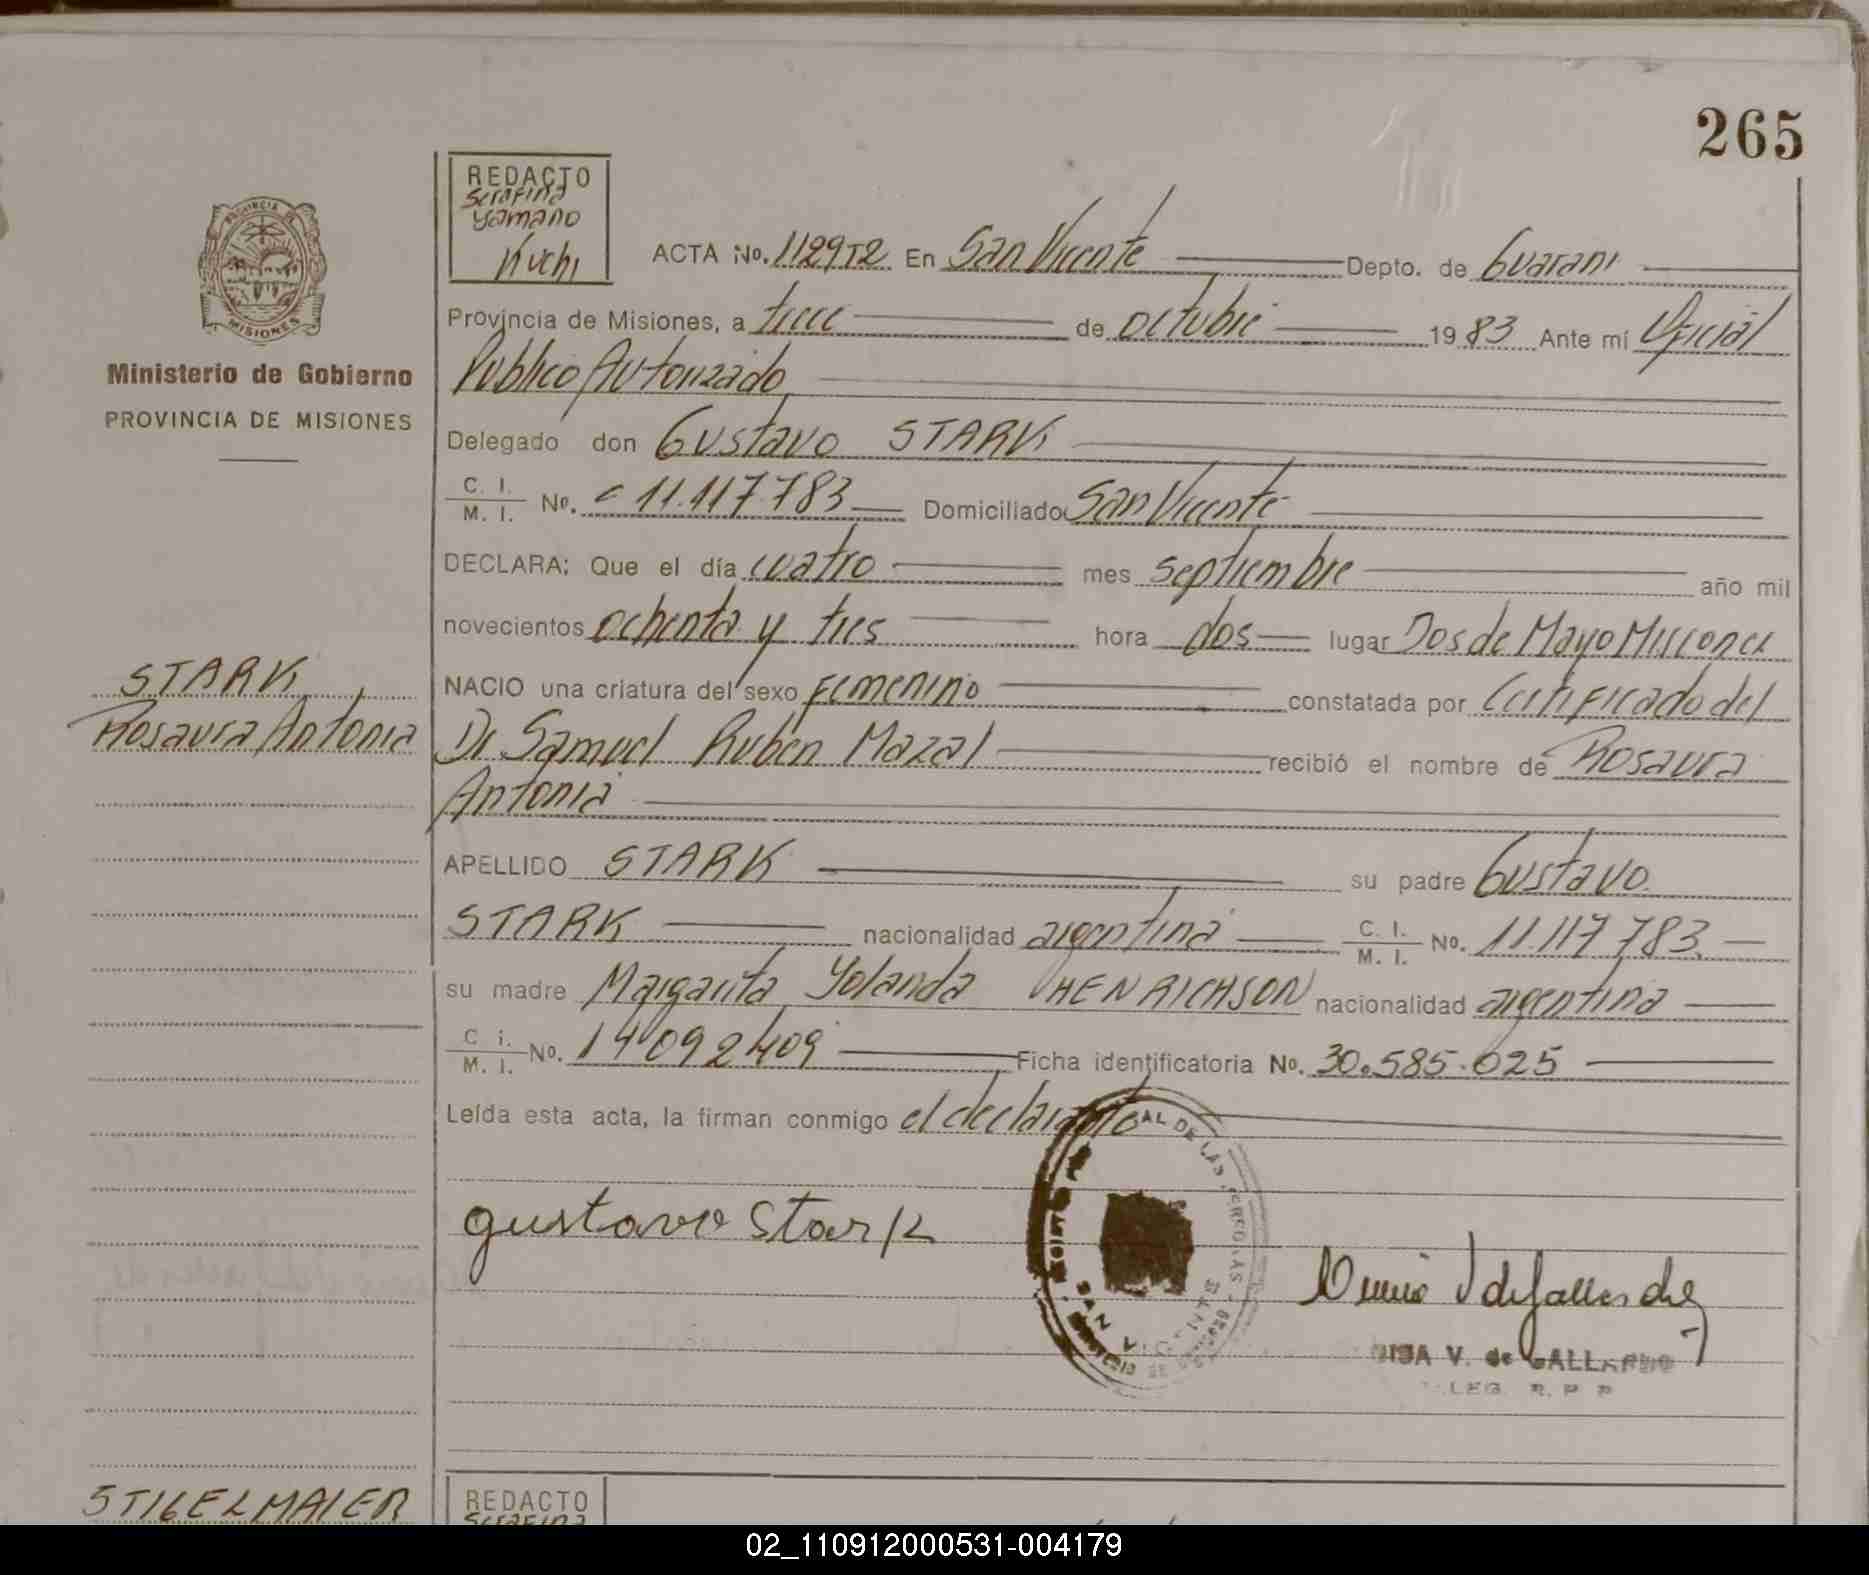 265
REDACTO
Serafina
Yamano
Kuchi
PROVINCIA DE
MISIONES
Ministerio de Gobierno
PROVINCIA DE MISIONES
ACTA No. 1129T2 En San Vicente Depto. de Guarani
Provincia de Misiones, a trece de octubre 1983 Ante mi Oficial
Publico Autorizado
Delegado don Gustavo STARK
C. I. / M. I. No. 11.117.783 Domiciliado San Vicente
DECLARA: Que el día cuatro mes septiembre año mil
novecientos ochenta y tres hora dos lugar Dos de Mayo Misiones
STARK
NACIO una criatura del sexo femenino constatada por Certificado del
Rosaura Antonia
Dr. Samuel Ruben Mazal recibió el nombre de Rosaura
Antonia
APELLIDO STARK su padre Gustavo
STARK nacionalidad argentina C. I. / M. I. No. 11.117.783
su madre Margarita Yolanda HENRICHSON nacionalidad argentina
C i. / M. I. No. 14092409 Ficha identificatoria No. 30.585.025
Leída esta acta, la firman conmigo el declarante
AL DE LAS
SAN VICENTE
gustavo Stark
V. de GALLARDO
LEG. R. P. P
STIGELMAIER
REDACTO
Serafina
02_110912000531-004179